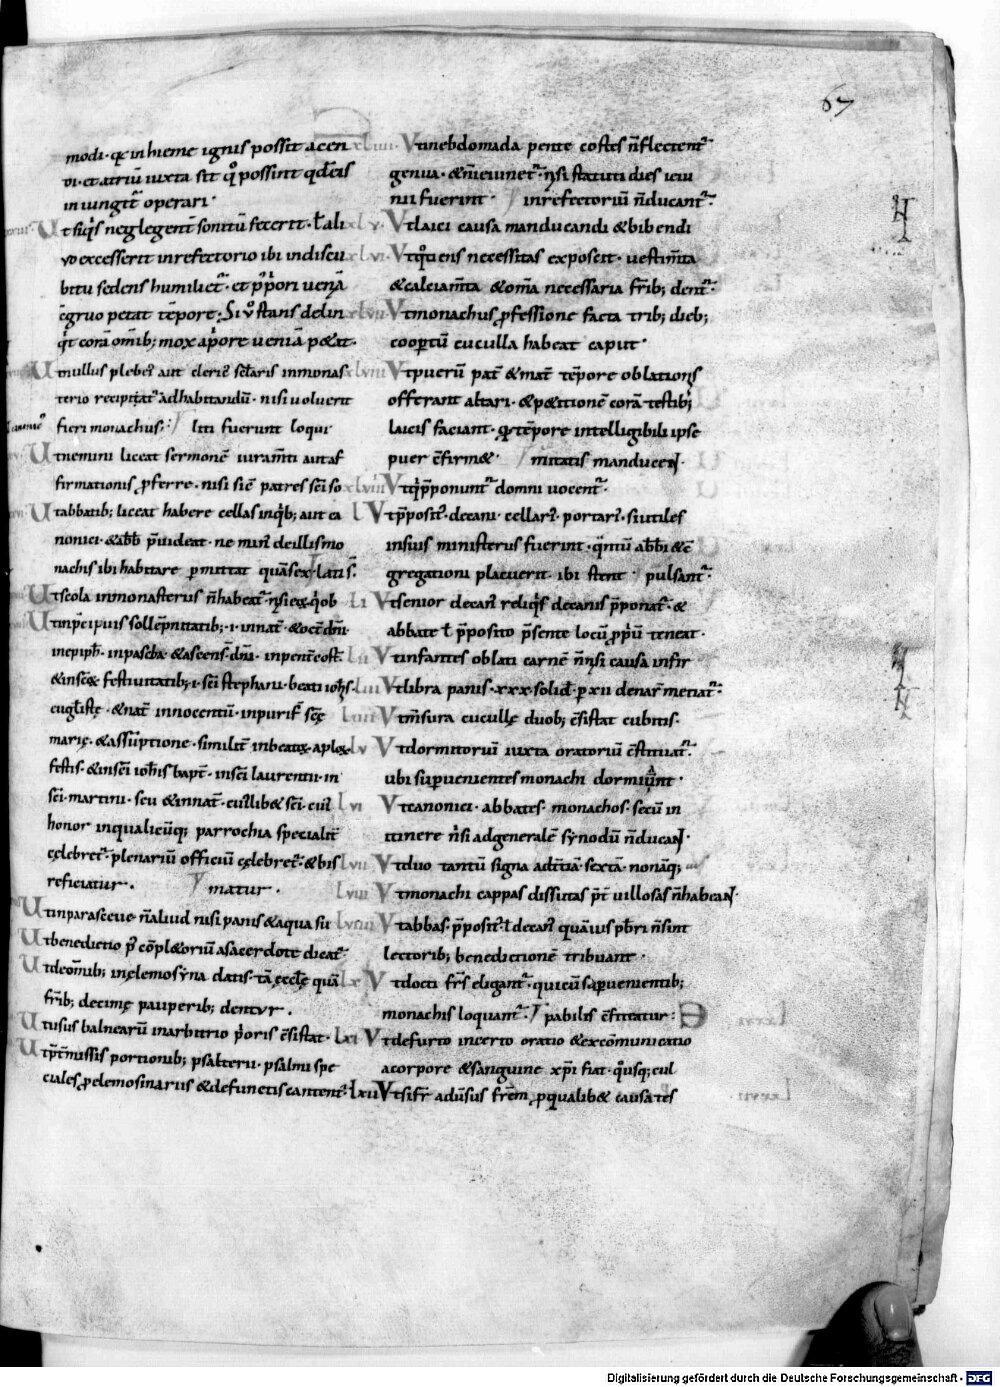 67
modi · qc in hieme ignis possit accen
di · et atriū iuxta sit q̊ possint qd eis
in iungit̄ operari ·
Ut siq̇s neglegent̄ sonitū fecerit · ł ali
xlv ·
vo excesserit in refectorio ibi indiscu
bitu sedens humiliet̄ · et p̄pori ueniā
c̄gruo petat tēpore · Si v̊ stans delin
q̇t corā om̄ib; mox a p̄ore ueniā p&at ·
Ut nullus plebei aut cleric scl̄aris in monas
terio recipitat̄ ad habitandū · nisi uoluerit
fieri monachus · liti fuerint loqui
canonic
Ut nemini liceat sermonē iuram̄ti aut af
firmationis ꝓferre · nisi sic patres sc̄i so
Ut abbatib; liceat habere cellas in q̇b; aut ca
nonici · & abb̄ p̄uideat · ne min deillis mo
nachis ibi habitare permittat quā sex · latis̄ ·
Ut scola in monasteriis n̄ habeat̄ · n̄si eoꝝ q̇ ob
Ut in p̄cipuis sollēpnitatib; · i · in nat̄ · & oct̄ dn̄i ·
in epiph̄ · in pascha · & ascens̄ dn̄i · in pentecost̄
& in sc̄oꝝ festiuitatib; · i · sc̄i stephani · beati ioh̄s ·
euḡl̄istę · & nat̄ innocentū · in purif̄ sc̄ę
marię · & assūptione · similit̄ in beatoꝝ · aplōꝝ
festis · & in sc̄i ioh̄is bapt̄ · in sc̄i laurentii · in
sc̄i martini · seu & in nat̄ · cui̇lib& sc̄i · cui̇
honor in qualicūq; parrochia specialit̄
cęlebret̄ · plenariū officiū cęlebret̄ · & bis
reficiatur · matur ·
Ut in parasceue n̄ aliud nisi panis & aqua su
Ut benedictio p̄ cōpl&oriū a sacerdote dicat̄ ·
Ut de om̄ib; in ęlemosyna datis · tā ęccłę quā
fr̄ib; decimę pauperib; dentur ·
Ut usus balnearū in arbitrio p̄oris c̄sistat ·
Ut p̄t̄missis portionib; psalterii · psalmi spe
ciales ꝓ elemosinariis & defunctis cantent̄ ·
xliiii · Vt in ebdomada pente costes n̄ flectent̄
genua · & n̄ ieiunet̄ · n̄si statuti dies ieiu
nii fuerint · in refectoriū n̄ ducant̄ ·
Vt laici causa manducandi & bibendi
xlvi · Vt q̊tiens necessitas exposcit · uestim̄ta
& calciam̄ta & om̄ia necessaria fr̄ib; dent̄ ·
xlvii Vt monachus ꝓfessione facta trib; dieb;
coopertū cuculla habeat caput ·
xlviii Vt puerū pat̄ & mat̄ tēpore oblationis
offerant altari · & p&itionē corā testib;
laicis faciant · q̄ tēpore intelligibili ipse
puer c̄firm& · nitatis manducen̄t ·
xlviiii Vt q̇ p̄ponunt̄ domni uocent̄ ·
L Vt p̄posit̄ · decani · cellari̇ · portari̇ · si utiles
in suis ministeriis fuerint · q̄ntū abb̄i & c̄
gregationi placuerit · ibi stent · pulsant̄ ·
Li Vt senior decan̄ reliq̇s decanis p̄ponat̄ · &
abbate ł p̄posito p̄sente locū ꝓpriū teneat ·
Lii Vt infantes oblati carnē n̄ n̄si causa infir
Liii Vt libra panis · xxx · solid̄ · p xii denar̄ metiat̄ ·
Liiii Vt m̄sura cucullę duob; c̄sistat cubitis ·
Lv Vt dormitoriū iuxta oratoriū c̄stituat̄ ·
ubi superuenientes monachi dormiant ·
Lvi Vt canonici · abbates · monachos · secū in
itinere n̄si ad generalē synodū n̄ ducan̄t ·
Lvii Vt duo tantū signa ad t̄tiā · sextā · nonāq;
Lviii Vt monachi cappas dissutas p̄t uillosas n̄ habean̄t ·
Lviiii Vt abbas · p̄posit̄ · ł decan̄ quāuis pb̄ri n̄ sint
lectorib; benedictionē tribuant ·
Lx Vt docti fr̄s eligant̄ · qui cū superuenientib;
monachis loquant̄ · pabilis c̄stitatur :
Lxi Vt de furto incerto oratio & excōmunicatio
a corpore & sanguine xp̄i fiat · q̊usq; cul
Lxii Vt si fr̄ adūsus fr̄em ꝓ qualib& causa tes
Digitalisierung gefördert durch die Deutsche Forschungsgemeinschaft - DFG